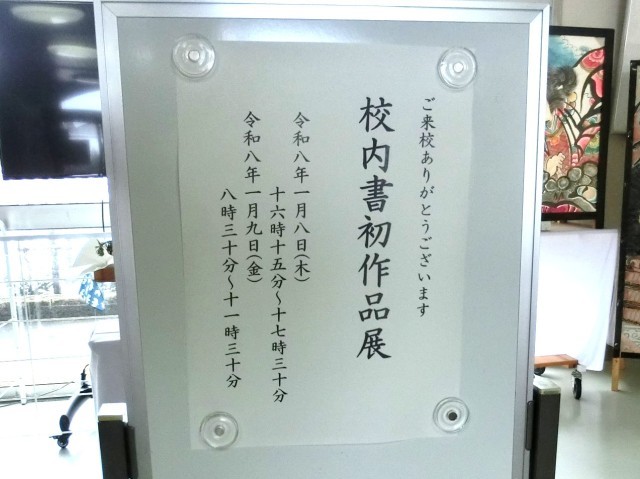 ご来校ありがとうございます
校内書初作品展
令和八年一月八日(木)
十六時十五分~十七時三十分
令和八年一月九日(金)
八時三十分~十一時三十分